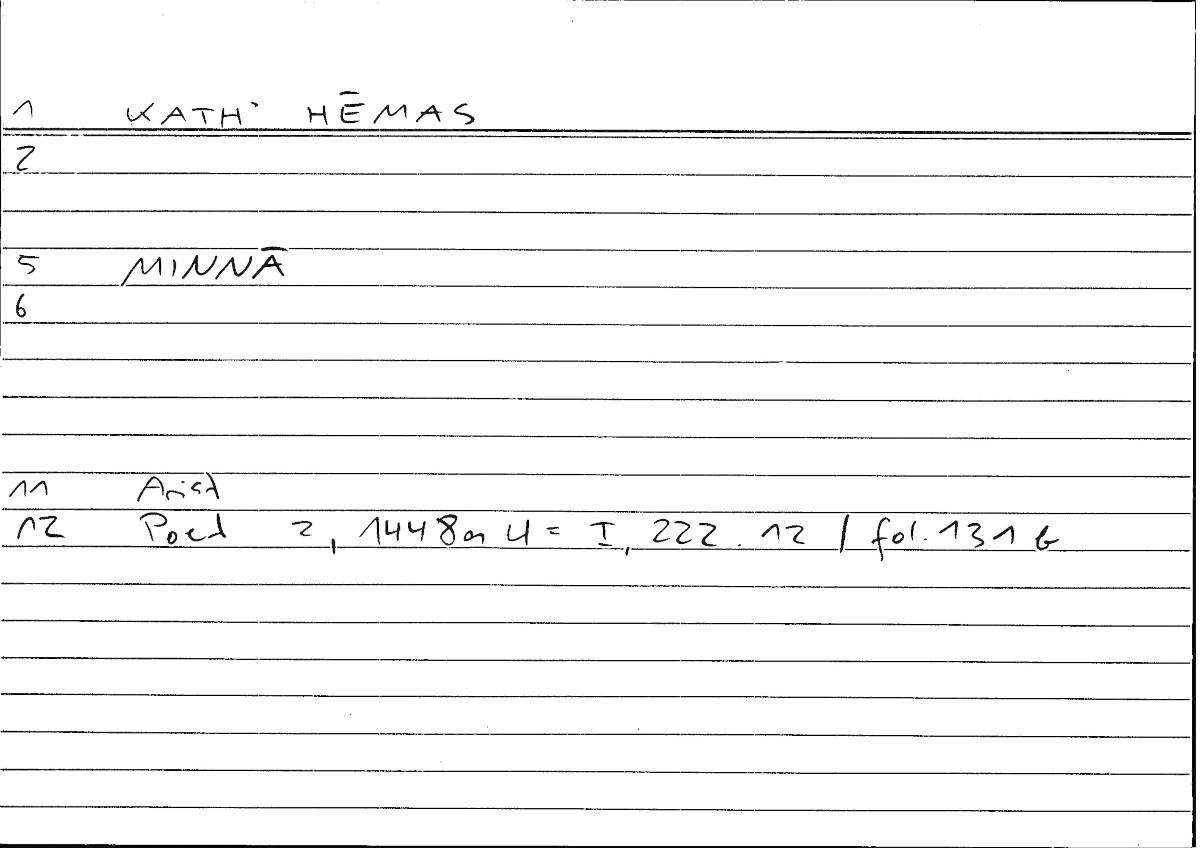 1 KATH' HĒMAS
2
5 MINNĀ
6
11 Arist
12 Poet 2, 1448a4 = I, 222.12 / fol. 131b